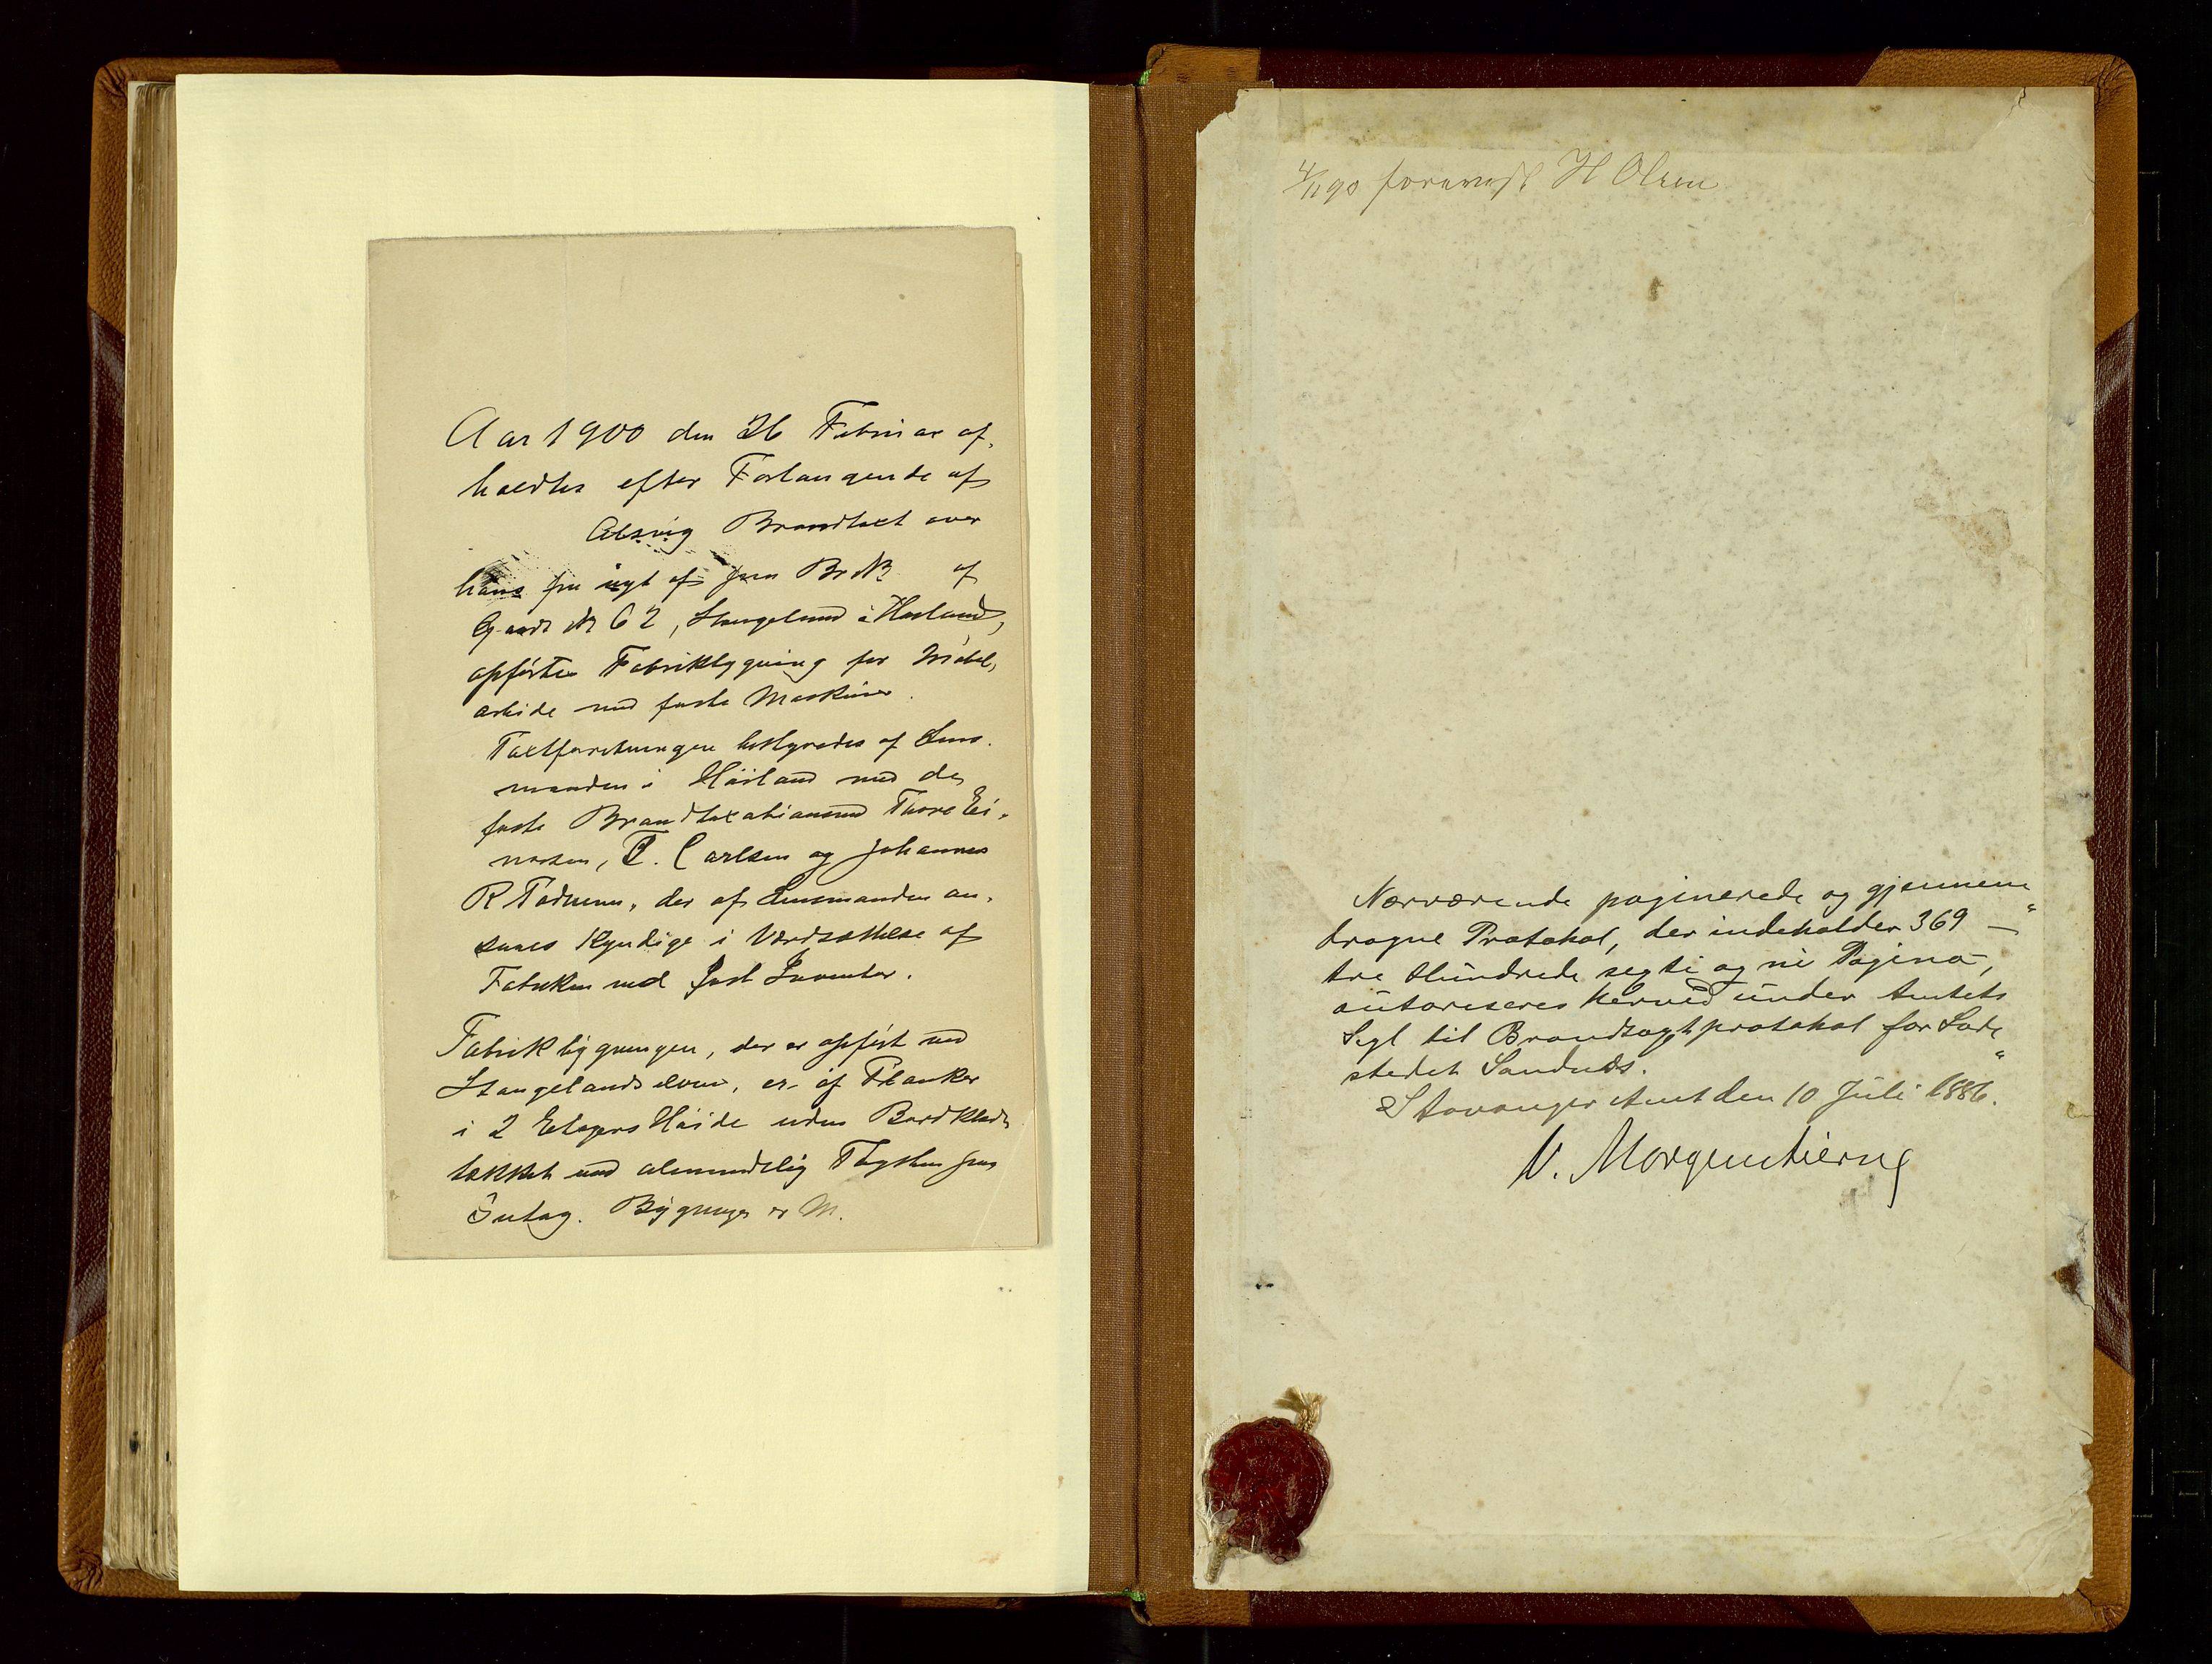 Aar 1900 den 26 Februar af-
holdtes efter Forlangende af
Alsvig Brandtaxt over
hans paa af Br № af
Gaards № 62, Stangeland i Høiland,
opførte Fabrikbygning for Møbel-
arbeide med faste Maskiner.
Taxtforretningen bestyredes af Lens-
manden i Høiland med de
faste Brandtaxationsmænd Thore Ei-
narsen, T. Carlsen og Johannes
R Tadnem, der af Lensmanden an-
saaes Kyndige i Værdsættelse af
Fabrikken med fast Inventar.
Fabrikbygningen, der er opført ved
Stangelandselven, er af Planker
i 2 Etagers Høide uden Bordklædn
tækket med almindelig Tagsten paa
Bygningen er M.
4/11 90 forevist H Olsen
Nærværende paginerede og gjennem"
dragne Protokol, der indeholder 369 —
tre Hundrede segsti og ni Pagina,
autoriseres herved under Amtets
Segl til Brandtaxtprotokol for Lade"
stedet Sandnæs.
Stavanger Amt den 10 Juli 1886.
V. Morgenstierne